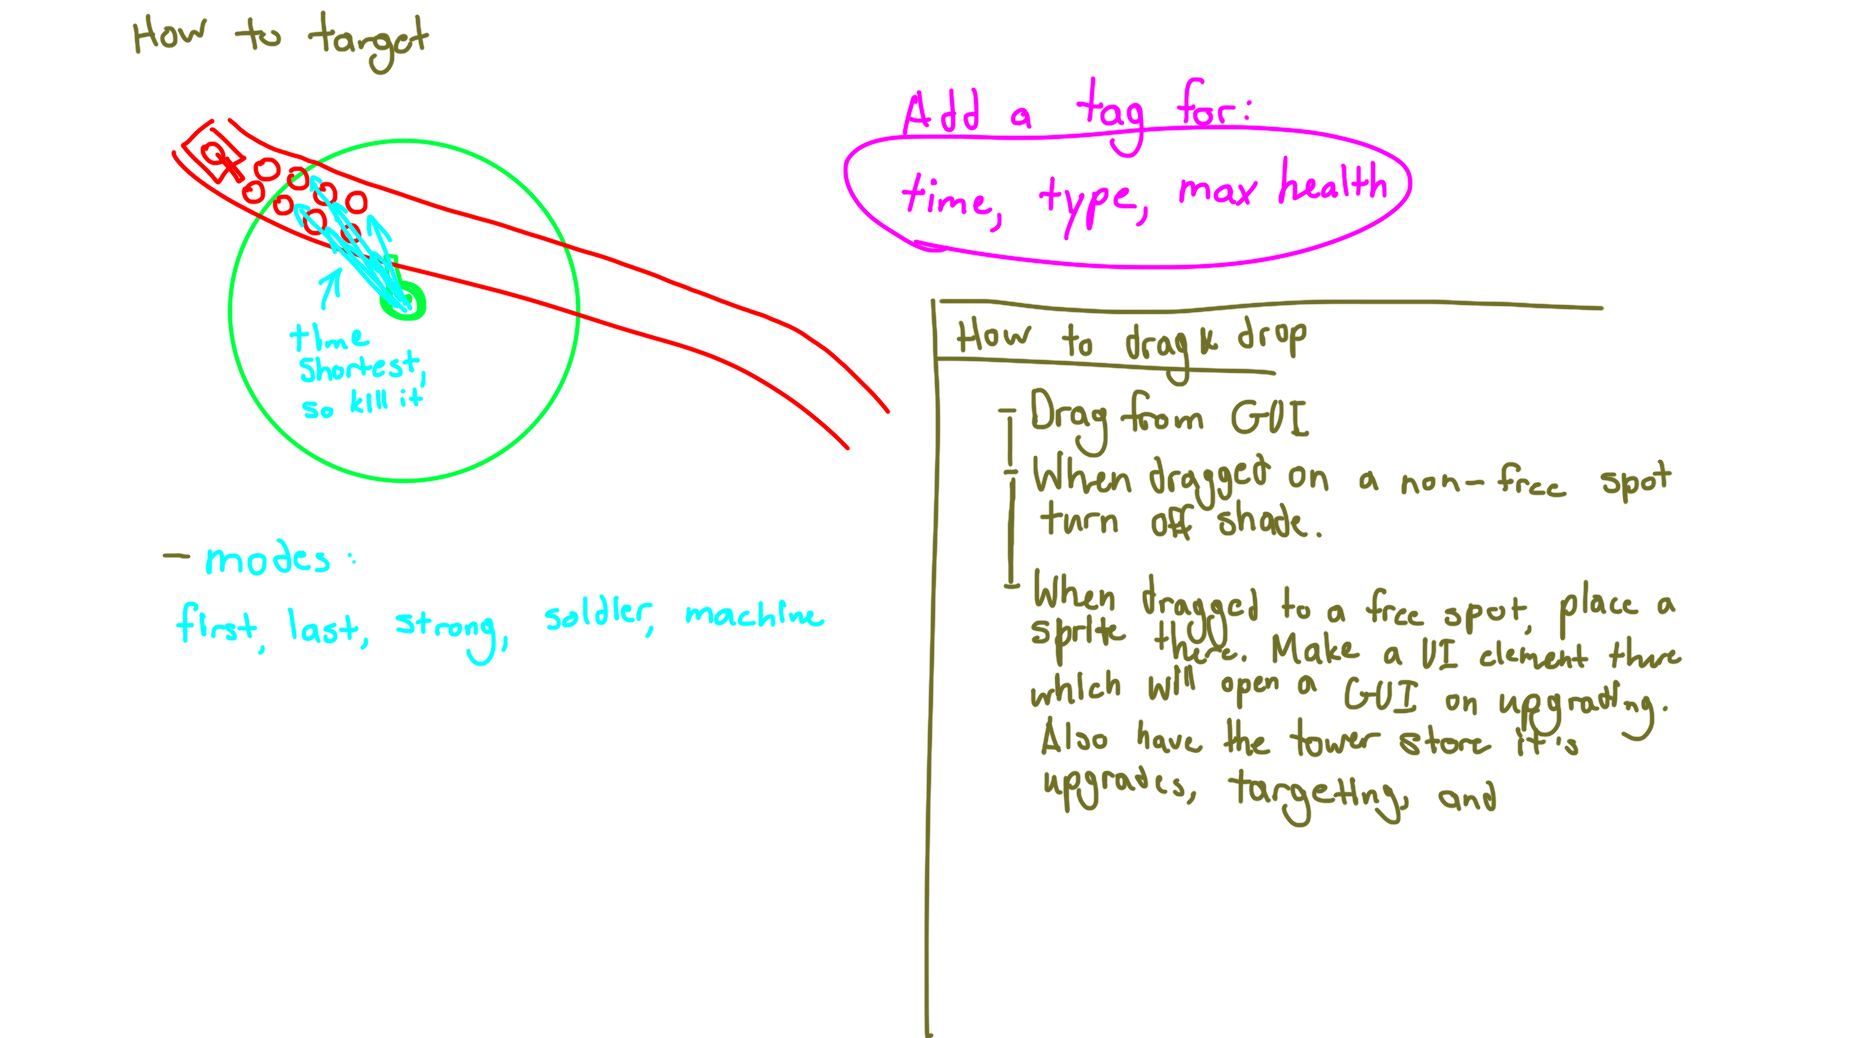 How to target
time
shortest,
so kill it
- modes:
first, last, strong, soldier, machine
Add a tag for:
time, type, max health
How to drag & drop
- Drag from GUI
- When dragged on a non-free spot
turn off shade.
- When dragged to a free spot, place a
sprite there. Make a UI element there
which will open a GUI on upgrading.
Also have the tower store it's
upgrades, targeting, and